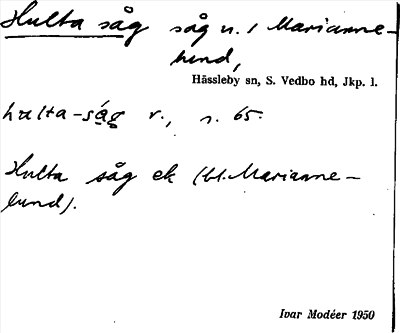 Hulta såg såg u. / Marianne-
lund,
Hässleby sn, S. Vedbo hd, Jkp. l.
hulta-såg v., s. 65.
Hulta såg ek (bl. Marianne-
lund).
Ivar Modéer 1950